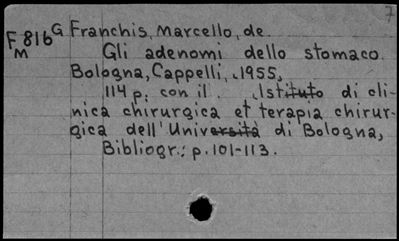 7
F 816 G Franchis, Marcello, de.
M Gli adenomi dello stomaco.
Bologna, Cappelli, 1955,
114 p. con il. Istituto di cli-
nica chirurgica et terapia chirur-
gica dell'Università di Bologna,
Bibliogr.: p. 101-113.